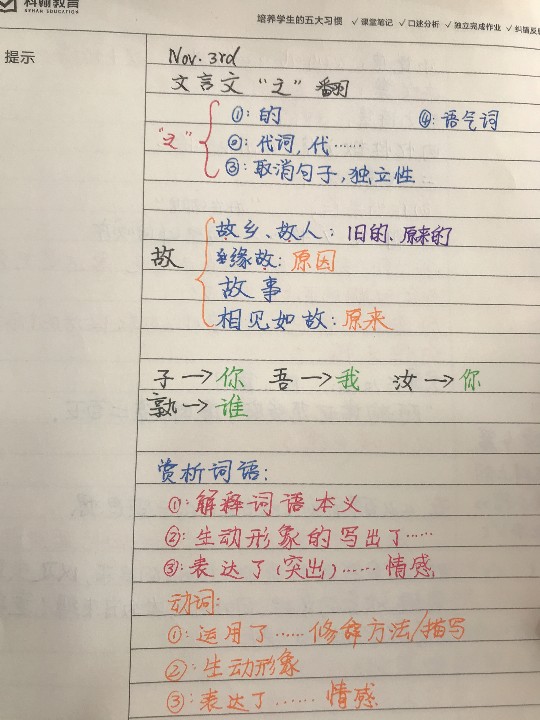 科翰教育
KEHAN EDUCATION
培养学生的五大习惯 ✓课堂笔记 ✓口述分析 ✓独立完成作业 ✓纠错反
提示
Nov. 3rd
文言文 “之” 翻
“之”
①: 的 ④: 语气词
②: 代词, 代……
③: 取消句子, 独立性
故
故乡、故人: 旧的、原来的
缘故: 原因
故事
相见如故: 原来
子→你 吾→我 汝→你
孰→谁
赏析词语:
①: 解释词语本义
②: 生动形象的写出了……
③: 表达了(突出)……情感
动词:
①: 运用了……修辞方法/描写
②: 生动形象
③: 表达了……情感